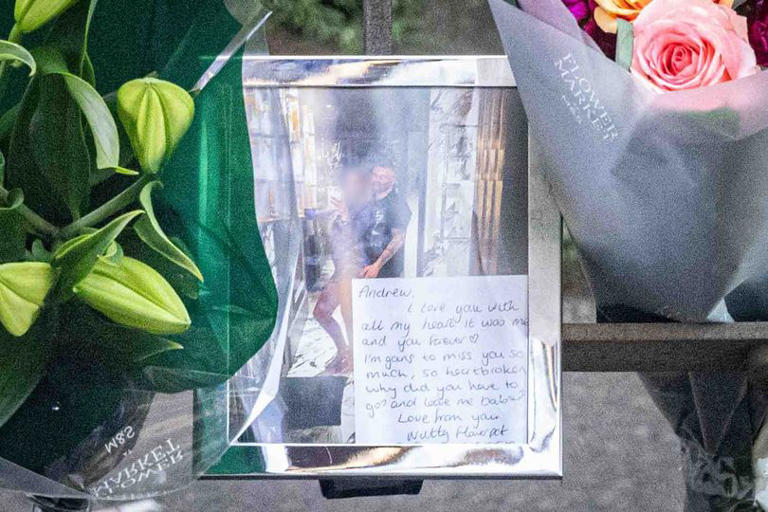 FLOWER
MARKET
M&S
Andrew,
I love you with
all my heart it was me
and you forever ♡
I'm gans to miss you so
much, so heartbroken
why did you have to
go? and leave me babe?
Love from your
Nutty Flowerpot
M&S
FLOWER
MARKET